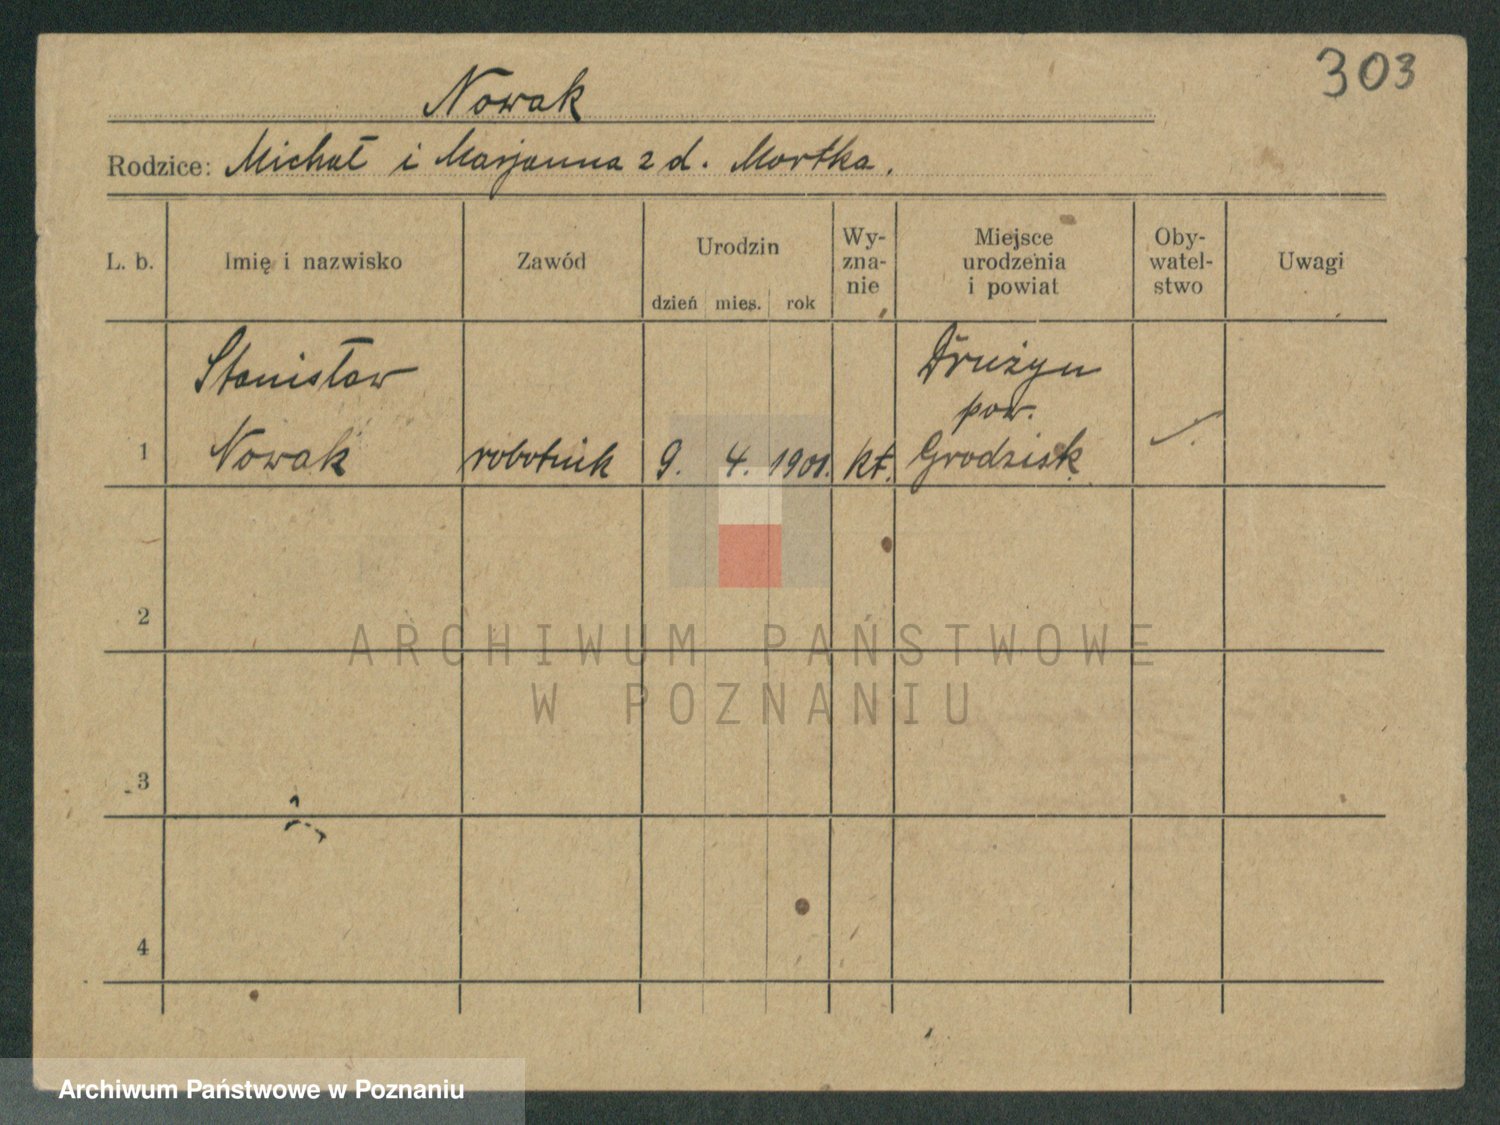 303
Nowak
Rodzice: Michał i Marjanna z d. Mortka.
L. b. Imię i nazwisko Zawód Urodzin Wy- Miejsce Oby- Uwagi
zna- urodzenia watel-
nie i powiat stwo
dzień mies. rok
Stanisław Drużyn
pow.
1 Nowak robotnik 9. 4. 1901. kt. Grodzisk
2
ARCHIWUM PAŃSTWOWE
W POZNANIU
3
4
Archiwum Państwowe w Poznaniu